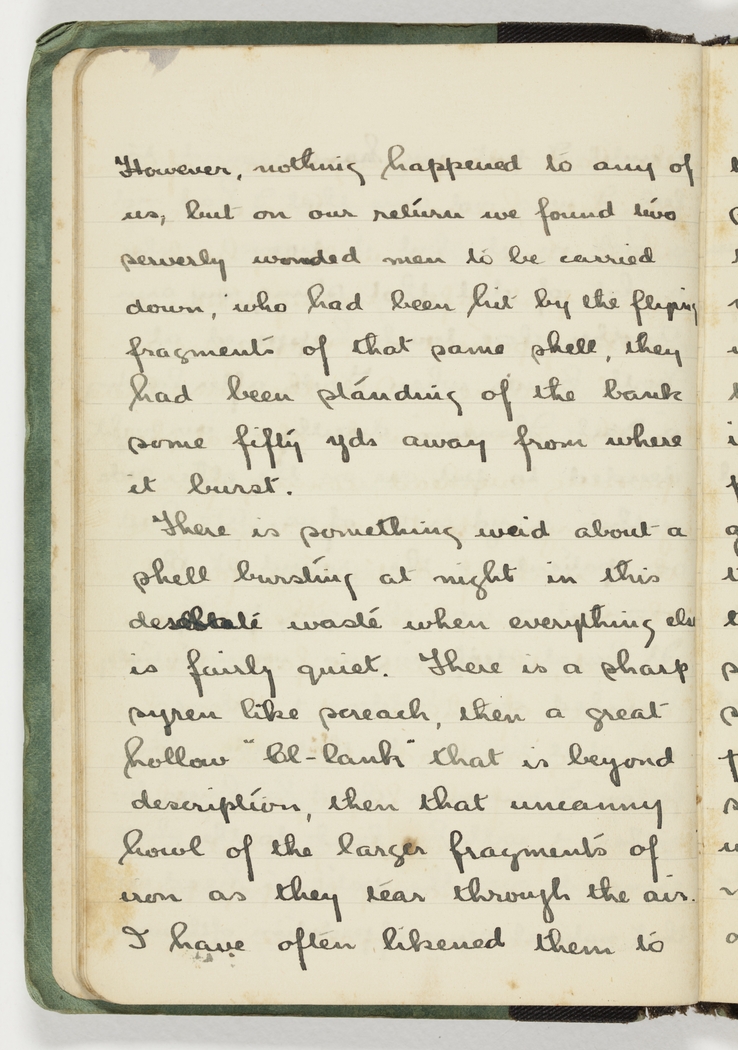 However, nothing happened to any of
us, but on our return we found two
serverly wonded men to be carried
down, who had been hit by the flying
fragments of that same shell, they
had been standing of the bank
some fifty yds away from where
it burst.
There is something weid about a
shell bursting at night in this
desolate waste when everything else
is fairly quiet. There is a sharp
syren like screach, then a great
hollow "bl-lank" that is beyond
description, then that uncanny
howl of the larger fragments of
iron as they tear through the air.
I have often likened them to